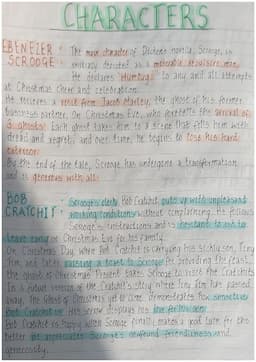 CHARACTERS
EBENEZER SCROOGE: The main character of Dickens' novella, Scrooge, is
entirely derided as a miserable miserly man.
He declares "Humbug" to any and all attempts
at Christmas cheer and celebration.
He receives a visit from Jacob Marley, the ghost of his former
business partner, on Christmas Eve, who foretells the arrival of
3 ghosts. Each ghost takes him to a scene that fills him with
dread and regret, and over time, he begins to lose his hard
exterior.
By the end of the tale, Scrooge has undergone a transformation
and is generous with all.
BOB CRATCHIT: Scrooge's clerk, Bob Cratchit puts up with unpleasant
working conditions without complaining. He follows
Scrooge's instructions and is hesitant to ask to
leave early on Christmas Eve for his family.
On Christmas Day, when Bob Cratchit is carrying his sickly son, Tiny
Tim, and is raising a toast to Scrooge for providing the feast,
the ghost of Christmas Present takes Scrooge to visit the Cratchits.
In a future version of the Cratchit's story where Tiny Tim has passed
away, the Ghost of Christmas yet to come demonstrates how
Bob Cratchit is. His sorrow displays his love for his son.
Bob Cratchit is happy when Scrooge finally makes a good turn for the
better he appreciates Scrooge's newfound friendliness and
generosity.